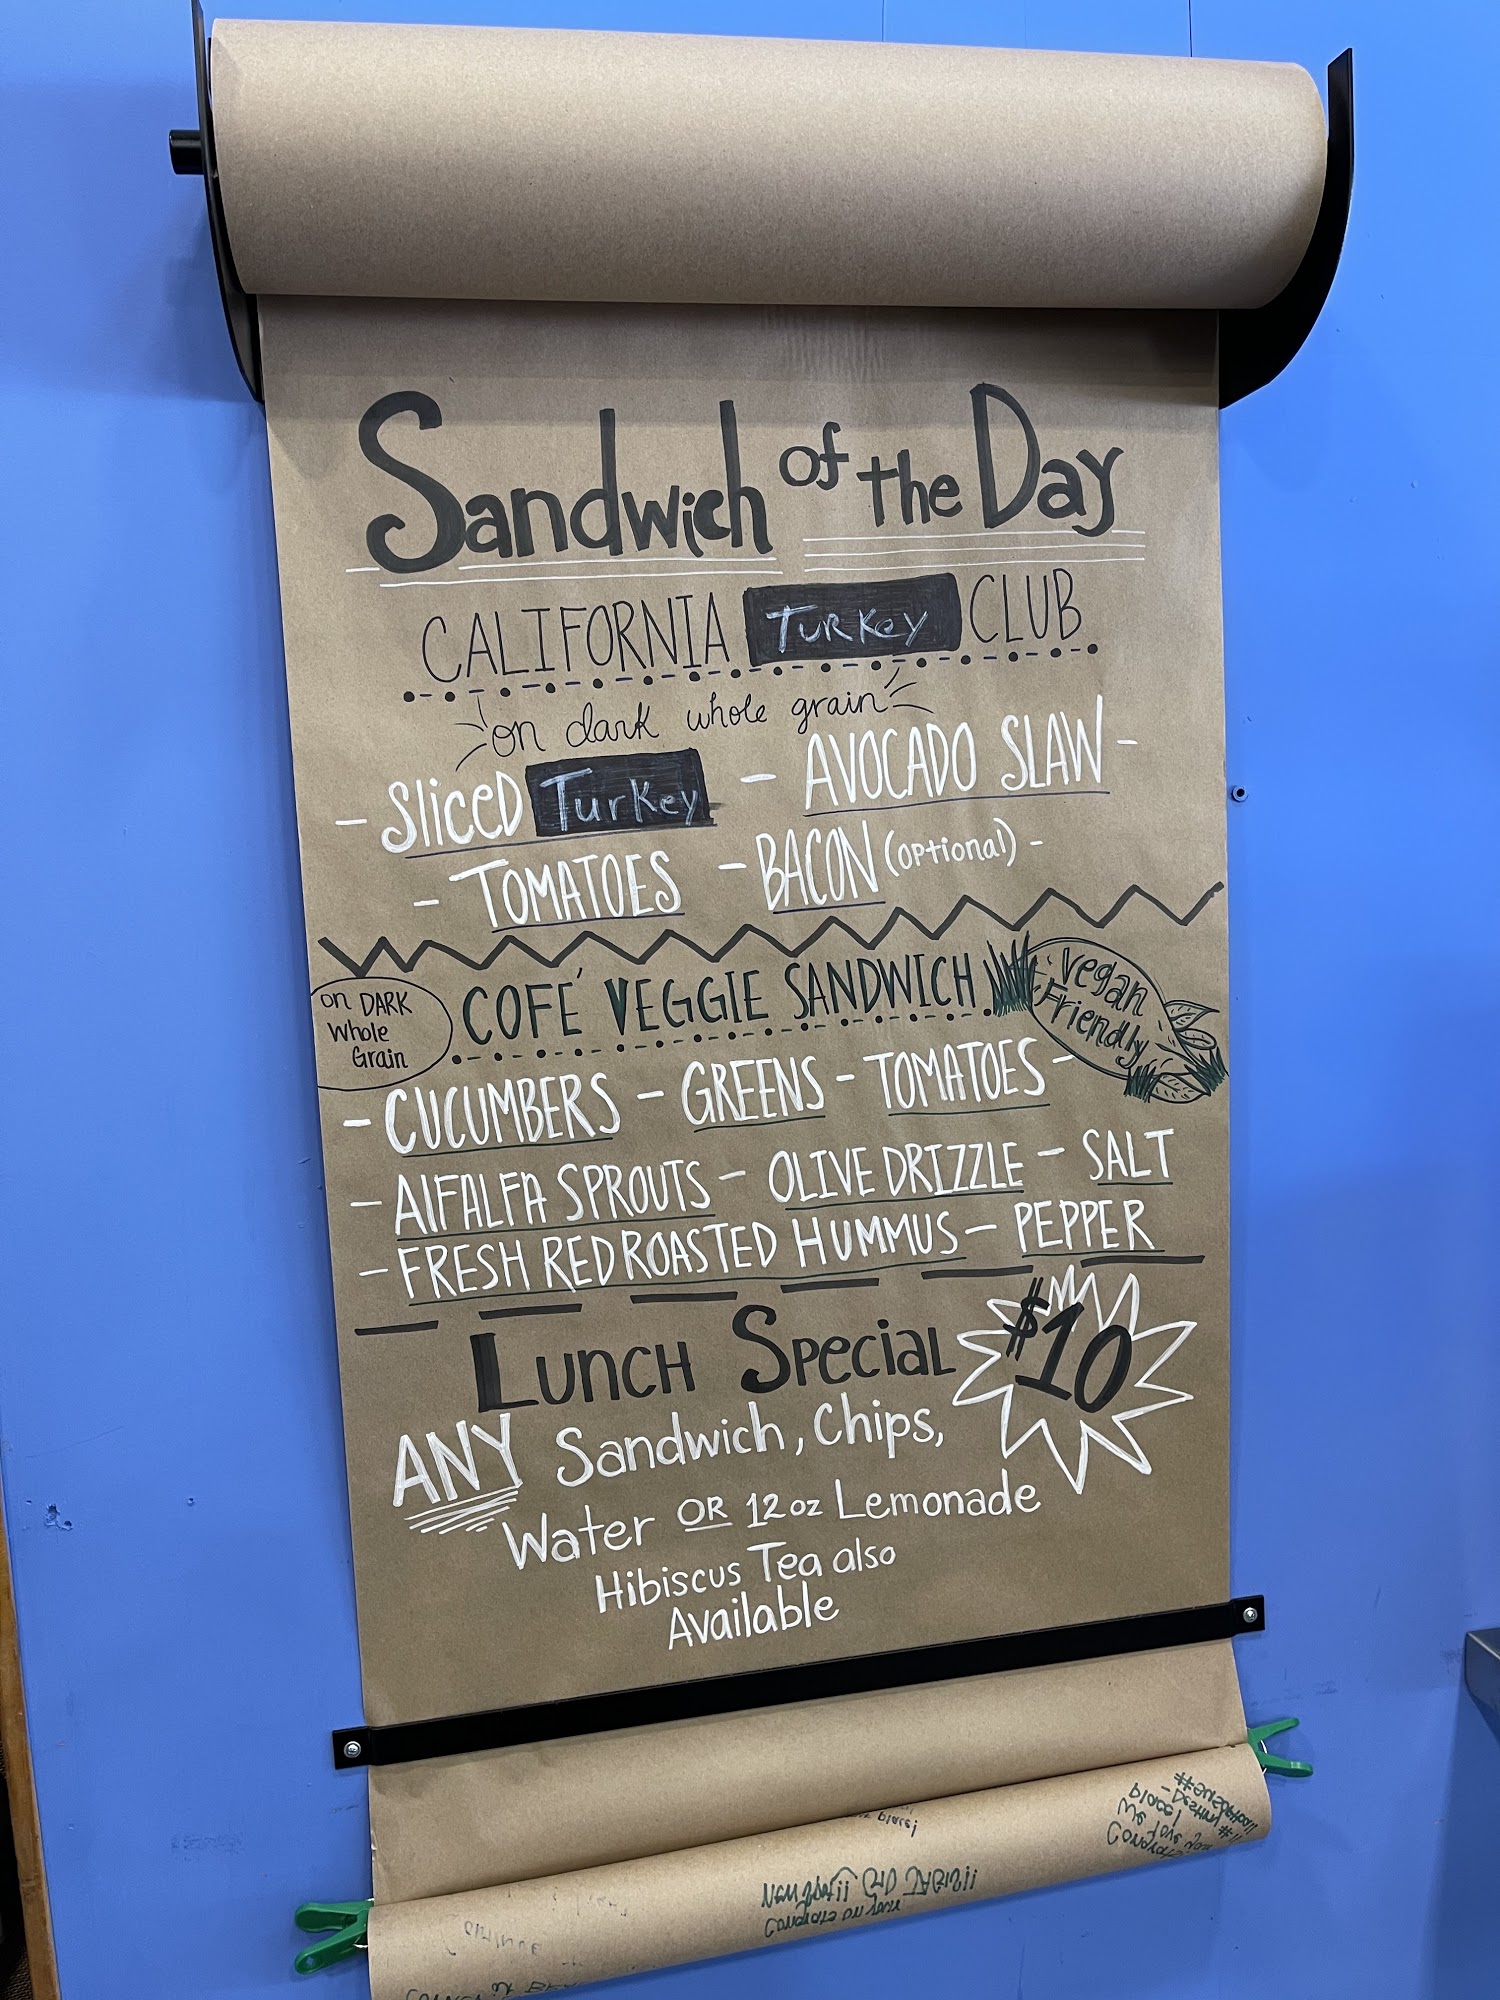 Sandwich of the Day
CALIFORNIA Turkey CLUB
on dark whole grain
- Sliced Turkey - AVOCADO SLAW -
- TOMATOES - BACON (optional) -
on DARK
Whole
Grain
COFE´ VEGGIE SANDWICH
Vegan
Friendly
- CUCUMBERS - GREENS - TOMATOES -
- AlFALFA SPROUTS - OLIVE DRIZZLE - SALT
- FRESH RED ROASTED HUMMUS - PEPPER
LUNCH SPECIAL $10
ANY Sandwich, Chips,
Water OR 12oz Lemonade
Hibiscus Tea also
Available
place!
We love
place!